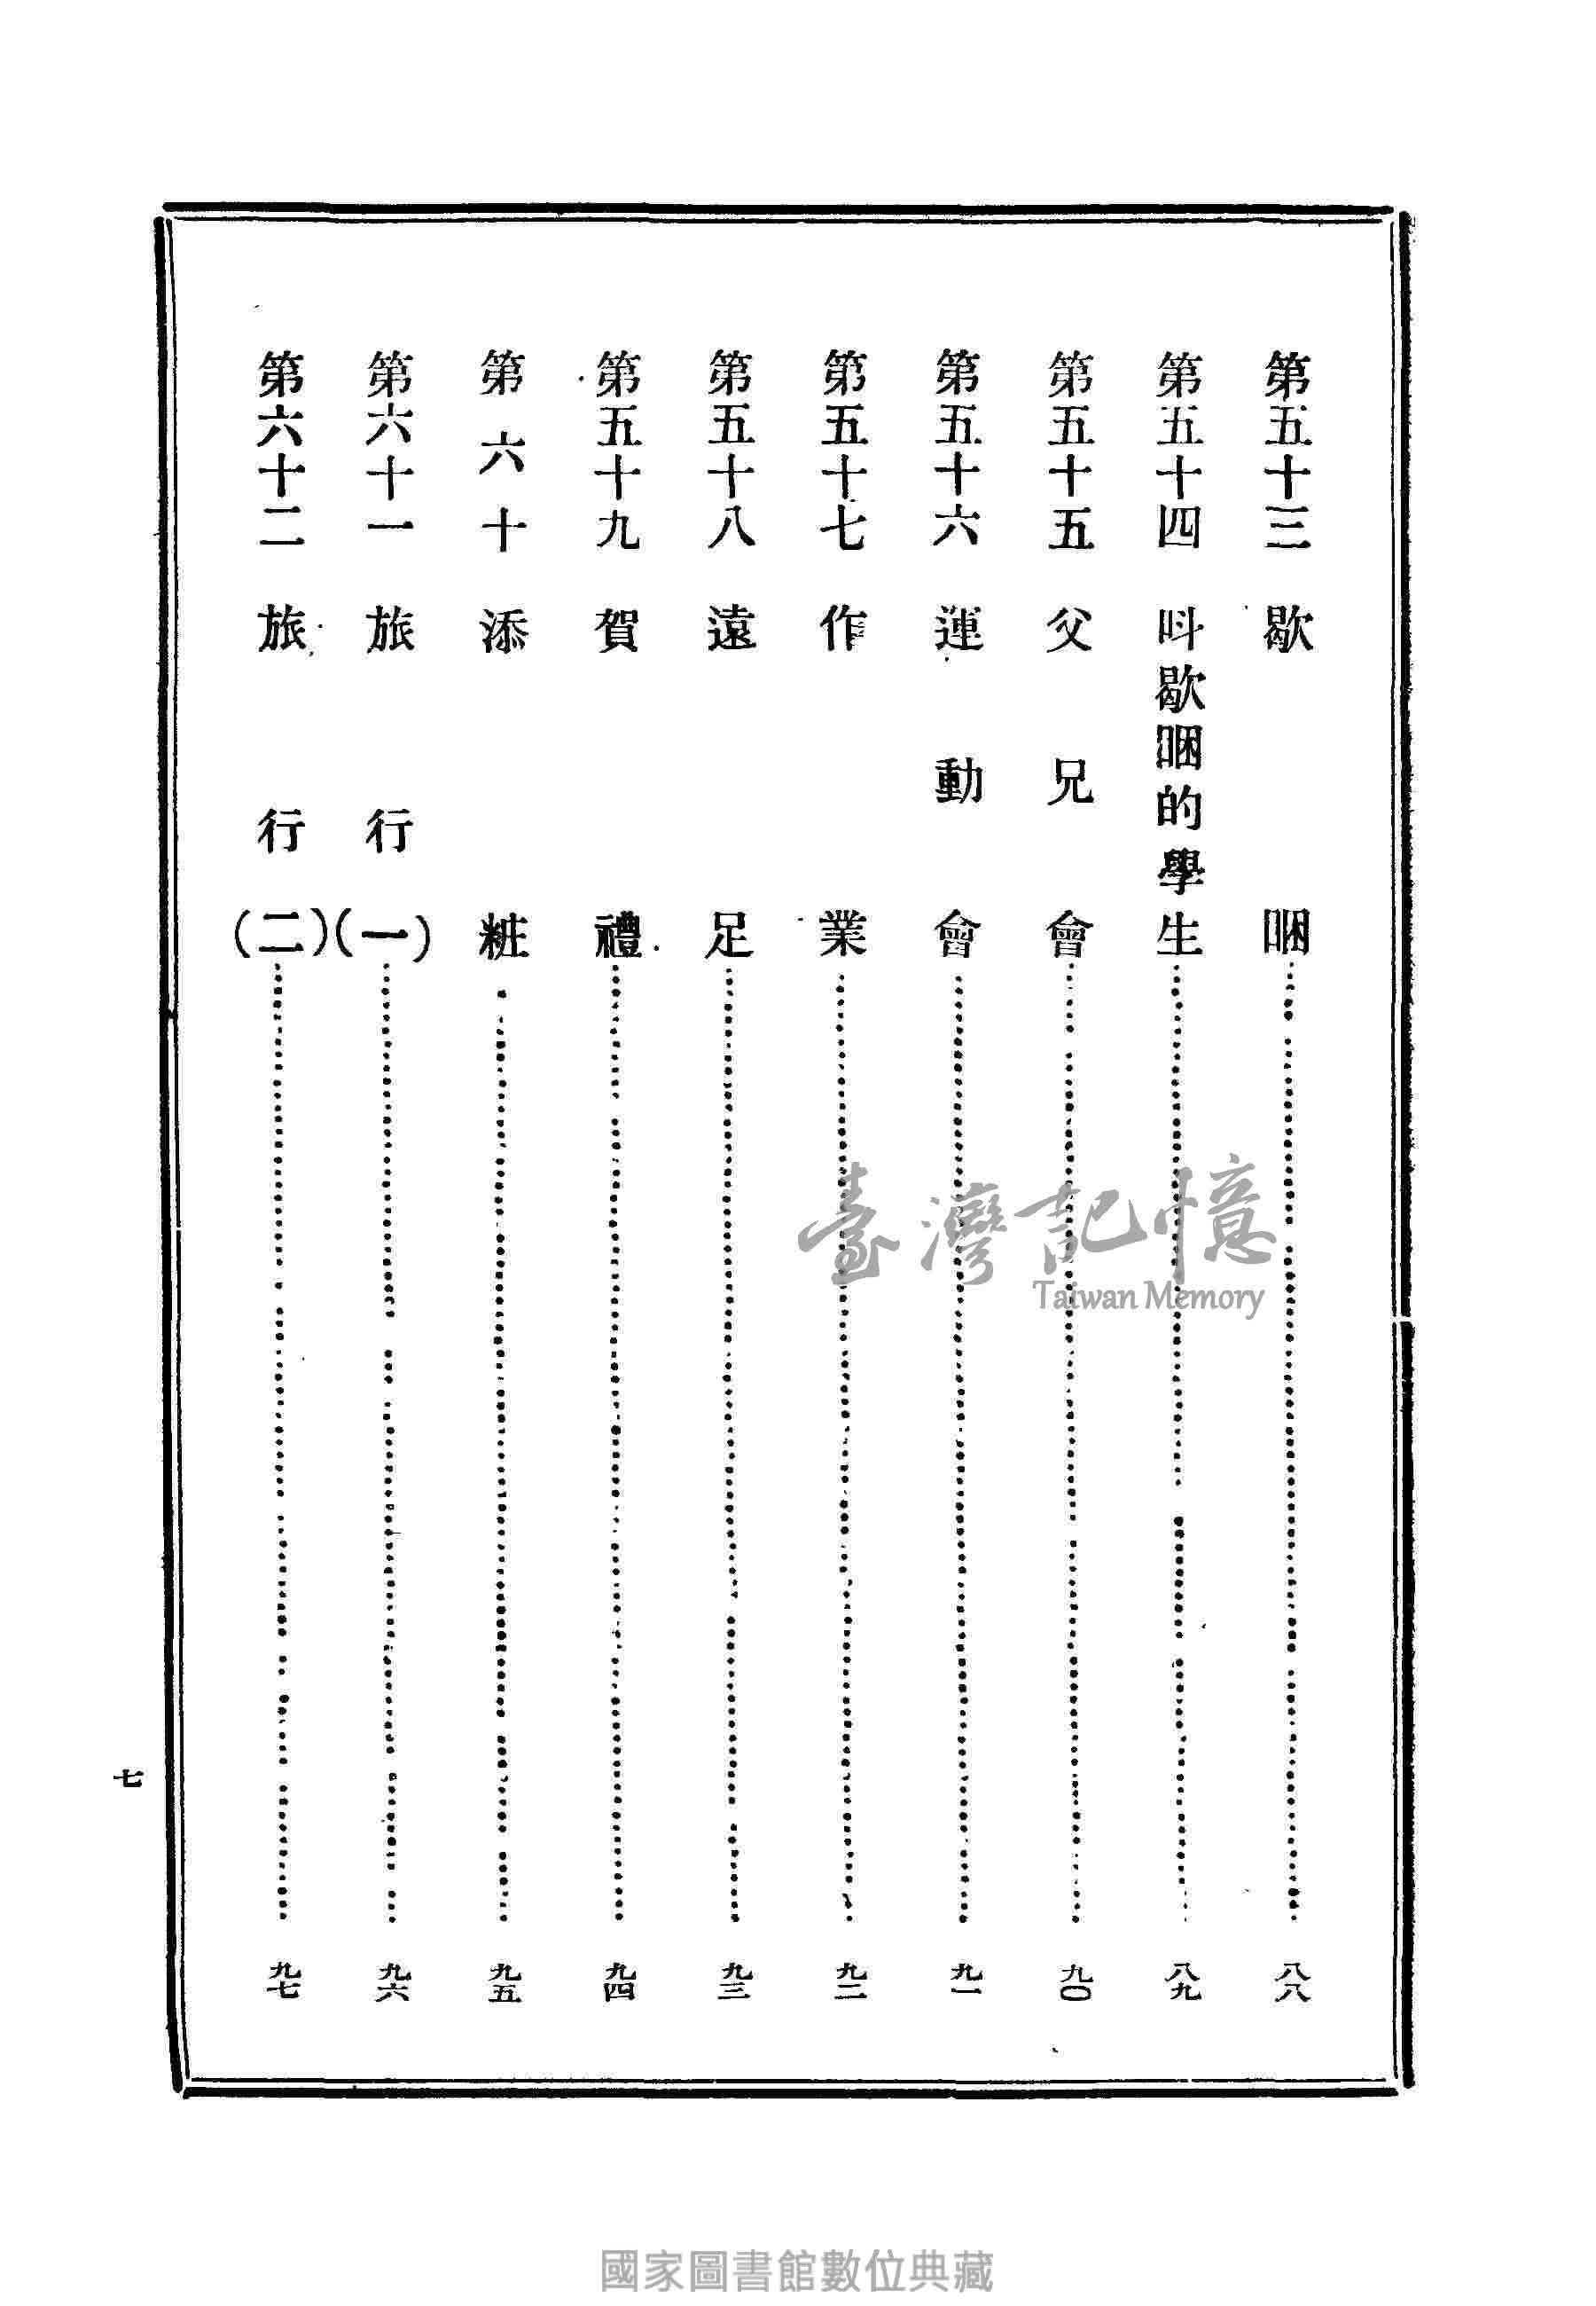 第五十三 歇睏……八八
第五十四 呌歇睏的學生……八九
第五十五 父兄會……九〇
第五十六 運動會……九一
第五十七 作業……九二
第五十八 遠足……九三
第五十九 賀禮……九四
第六十 添粧……九五
第六十一 旅行(一)……九六
第六十二 旅行(二)……九七
七
臺灣記憶
Taiwan Memory
國家圖書館數位典藏